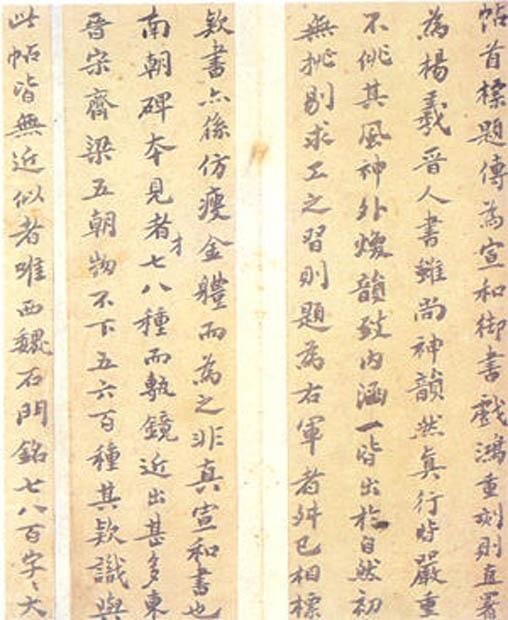 帖首標題傳為宣和御書戲鴻重刻則直署
為楊羲晉人書雖尚神韻然真行皆嚴重
不佻其風神外煥韻致內涵一皆出於自然初
無挑剔求工之習則題為右軍者舛已相標
欵書亦係仿瘦金體而為之非真宣和書也
南朝碑本見者才七八種而甎鏡近出甚多東
晉宋齊梁五朝物不下五六百種其欵識與
此帖皆無近似者唯西魏石門銘七八百字〻大